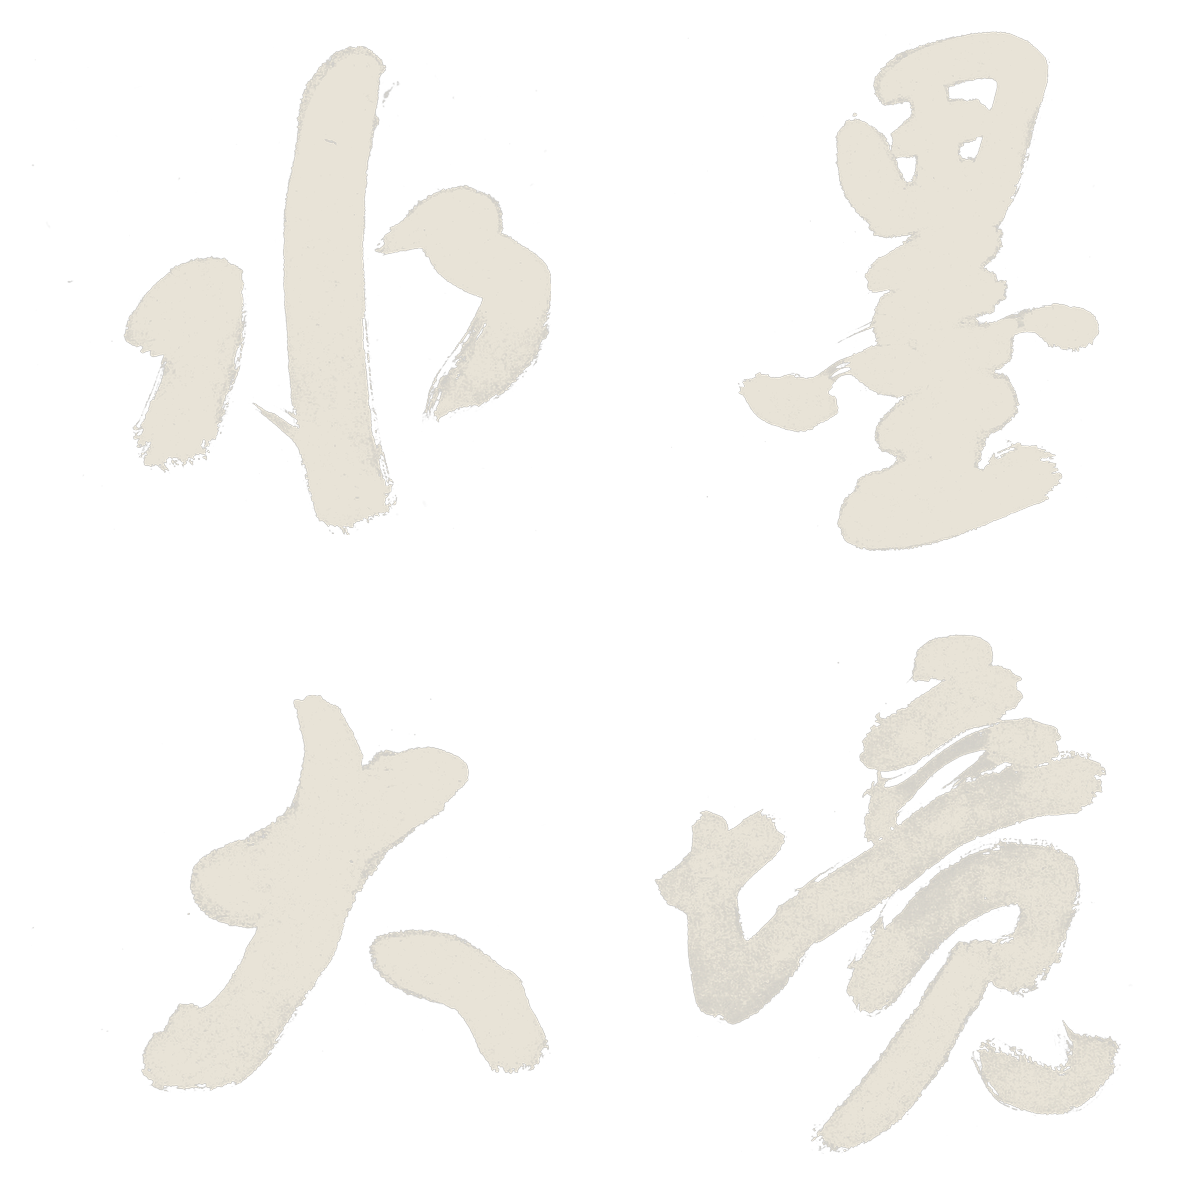 水墨
大境